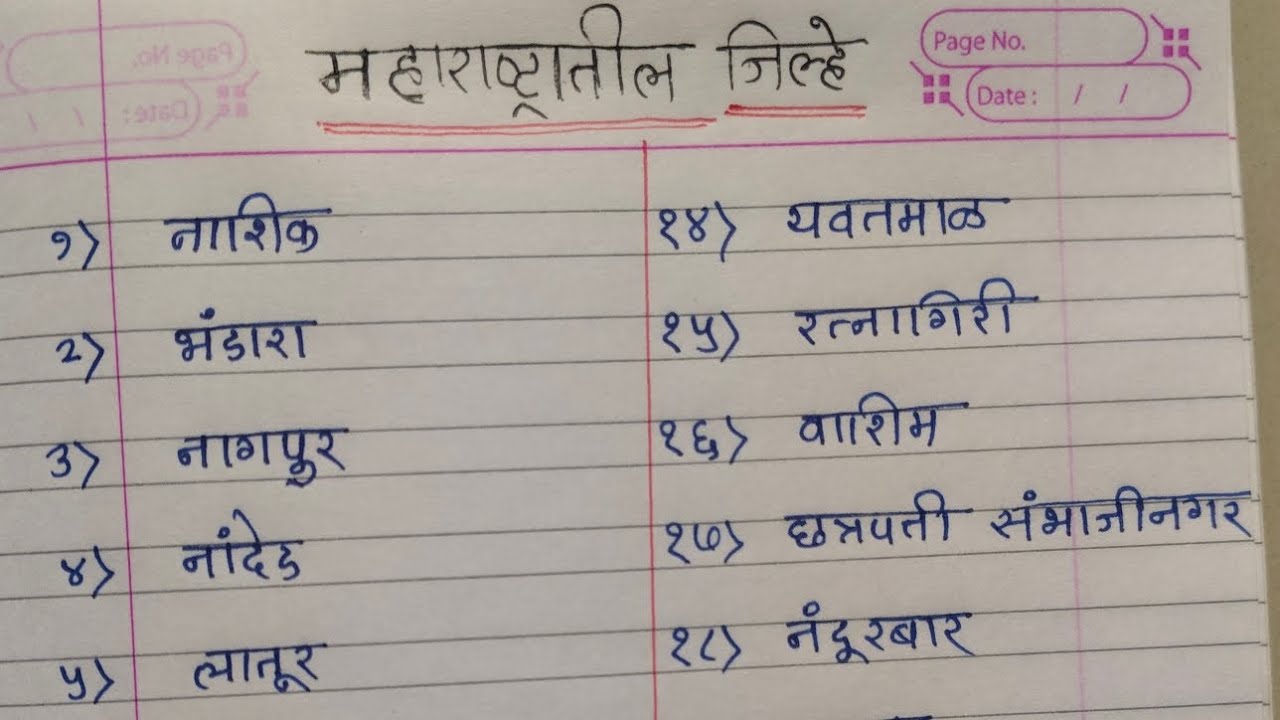 महाराष्ट्रातील जिल्हे
Page No.
Date: / /
१) नाशिक
२) भंडारा
३) नागपुर
४) नांदेड
५) लातूर
१४) यवतमाळ
१५) रत्नागिरी
१६) वाशिम
१७) छत्रपती संभाजीनगर
१८) नंदूरबार